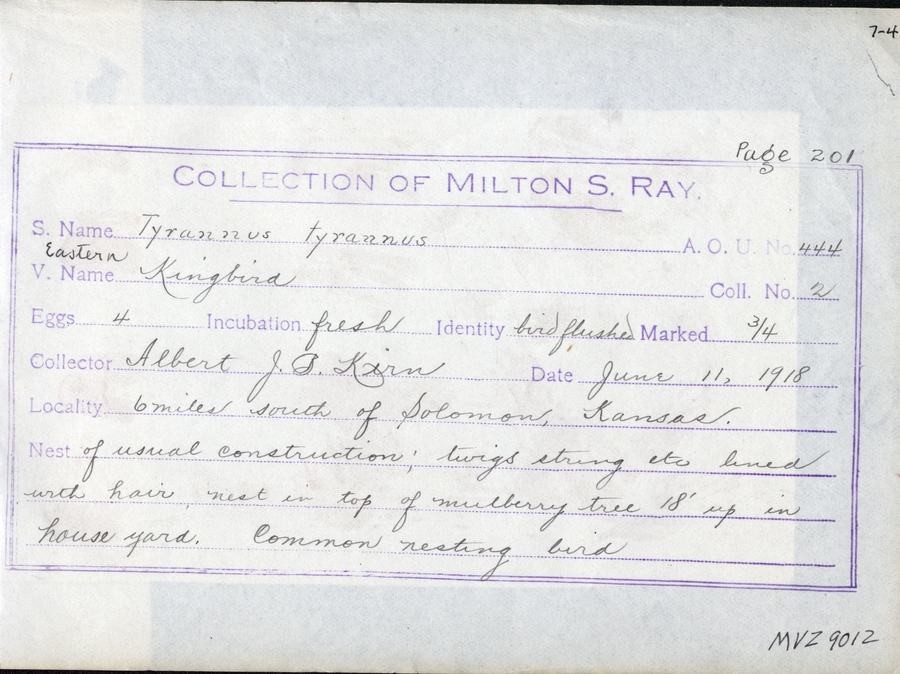 7-4
Page 201
COLLECTION OF MILTON S. RAY.
S. Name Tyrannus tyrannus A. O. U. No. 444
Eastern
V. Name Kingbird Coll. No. 2
Eggs 4 Incubation fresh Identity bird flushed Marked 3/4
Collector Albert J. B. Kirn Date June 11, 1918
Locality 6 miles south of Solomon, Kansas.
Nest of usual construction; twigs string etc lined
with hair, nest in top of mulberry tree 18' up in
house yard. Common nesting bird
MVZ 9012